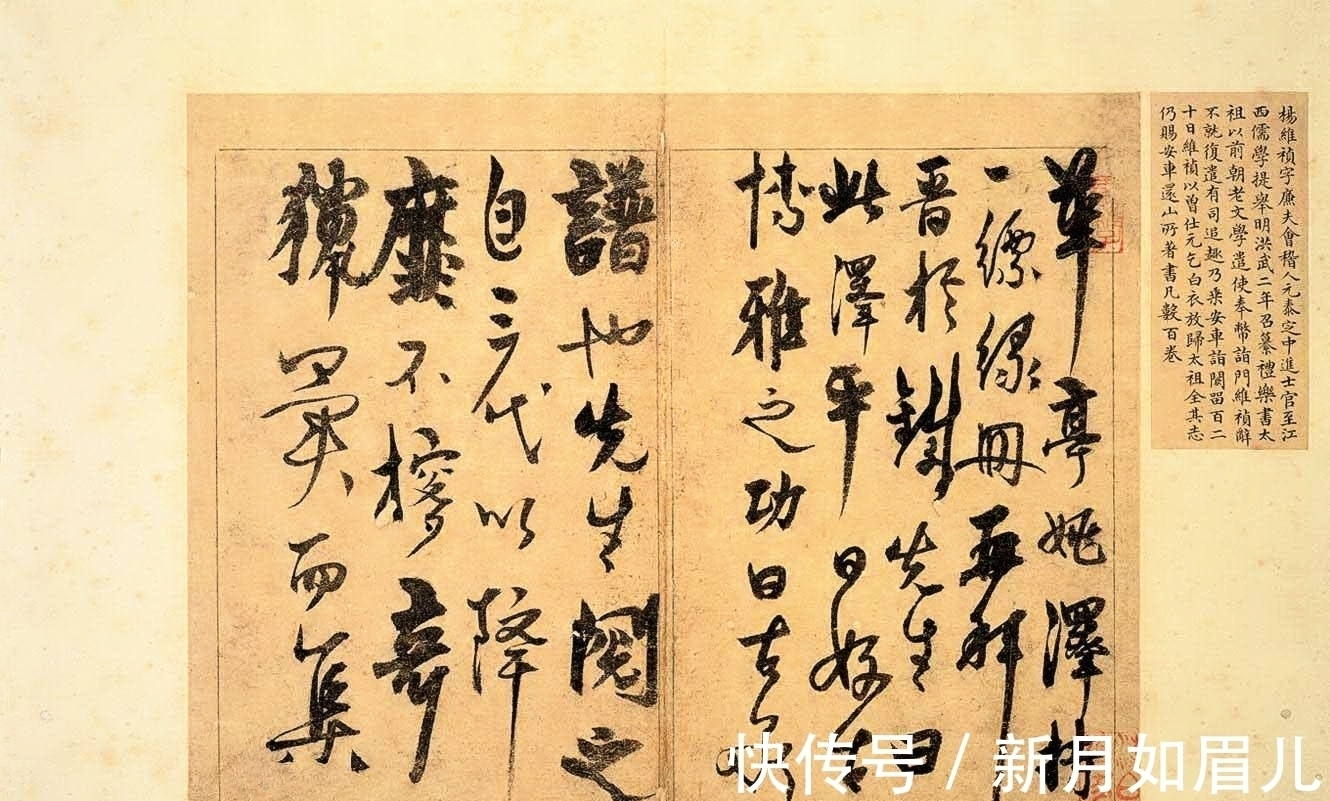 楊維禎字廉夫會稽人元泰定中進士官至江
西儒學提舉明洪武二年召纂禮樂書太
祖以前朝老文學遣使奉幣詣門維禎辭
不就復遣有司追趣乃乘安車詣闕留百二
十日維禎以曾仕元乞白衣放歸太祖全其志
仍賜安車還山所著書凡數百卷
華亭姚澤
一縹緣冊再拜
晋於鐵先生曰
此澤平日好古
博雅之功曰古
譜也先生閱之
自三代以降
靡不搜奇
獵異而集
快传号 / 新月如眉儿